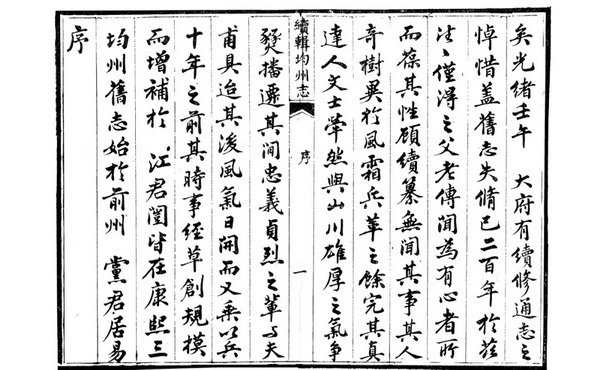 序
均州舊志始於前州 黨君居易
而增補於 江君闓皆在康熙三
十年之前其時事經草創規模
甫具迨其後風氣日開而又乘以兵
燹播遷其間忠義貞烈之輩与夫
達人文士犖然與山川雄厚之氣爭
續輯均州志 序 一
奇樹異於風霜兵革之餘完其真
而葆其性顧續纂無聞其事其人
往往僅得之父老傳聞為有心者所
悼惜蓋舊志失脩已二百年於茲
矣光緒壬午 大府有續修通志之